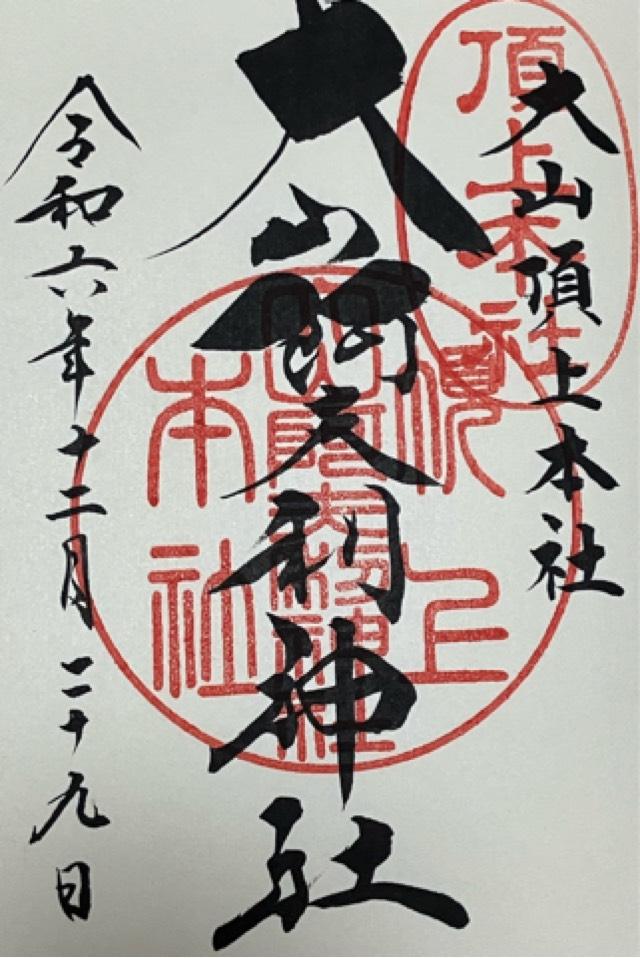 大山頂上本社
頂上本社
大山阿夫利神社
頂上
大山阿夫利神社
本社
令和六年十二月二十九日